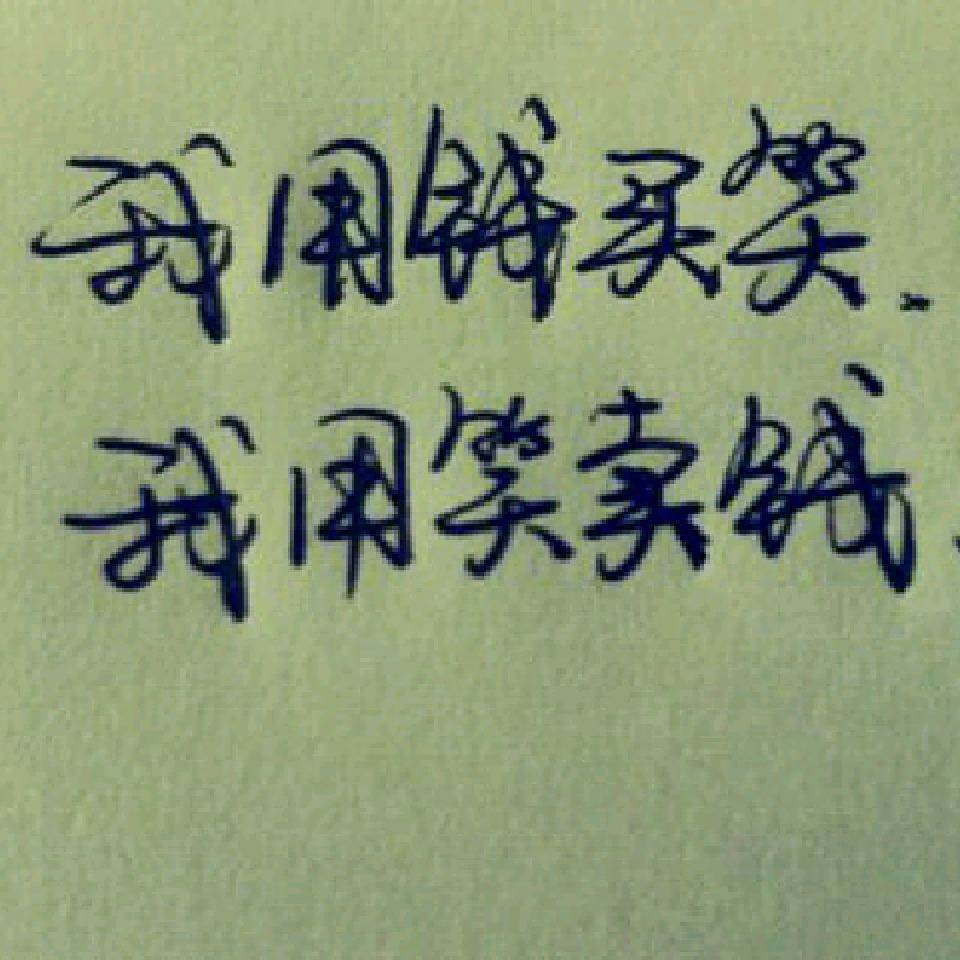 我用钱买笑.
我用笑卖钱.